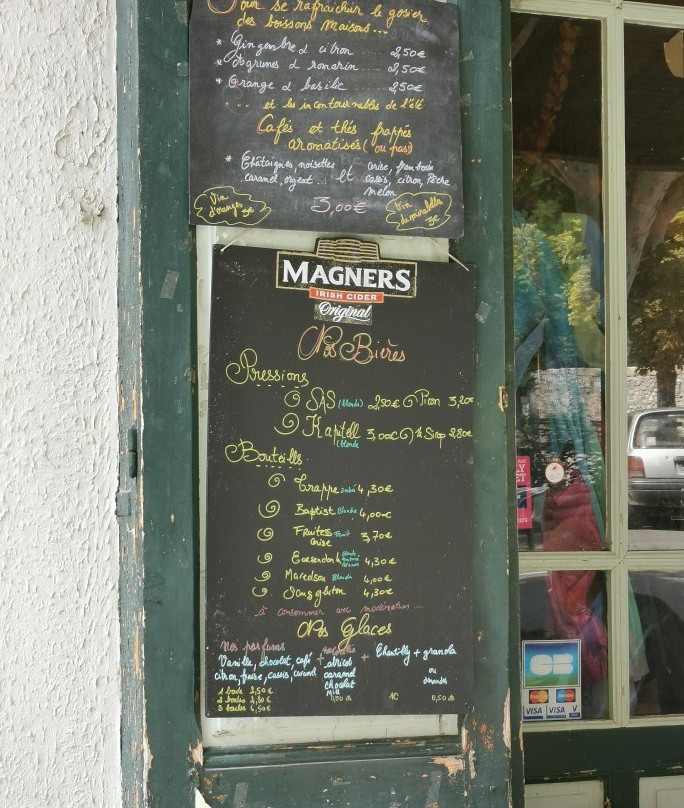 Pour se rafraichir le gosier
des boissons maisons...
* Gingembre et citron 2,50€
* Agrumes et romarin 2,50€
* Orange et basilic 2,50€
... et les incontournables de l'été
Cafés et thés frappés
aromatisés (ou pas)
* Chataignes, noisettes
caramel, orgeat... et
cerise, framboise
cassis, citron, Pêche
melon
3,00€
Vin
d'oranges 3€
Vin
de mirabelles
3€
MAGNERS
IRISH CIDER
Original
Nos Bières
Pressions
SAS (blonde) 2,50€ Picon 3,20€
Kapitell blonde 3,00€ Sirop 2,80€
Bouteilles
Trappe ambré 4,30€
Baptist Blanche 4,00€
Fruitess Fruit 3,70€
Cerise
4,30€
Maredsou Blonde 4,00€
Sans gluten 4,30€
à consommer avec modération...
Nos Glaces
Nos parfums
Vanille, chocolat, café
citron, fraise, cassis, caramel
1 boule 2,50€
2 boules
3 boules 4,50€
+
abricot
caramel
chocolat
+ Chantilly + granola
ou
0,50 cts
CB
VISA VISA V